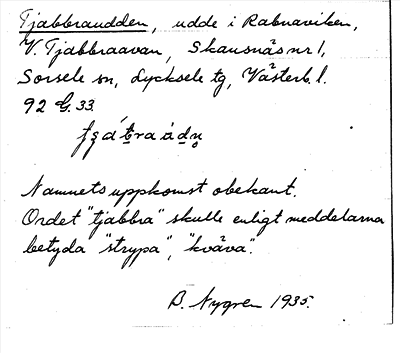 Tjabbraudden, udde i Rabnaviken,
V. Tjabbraavan, Skansnäs nr 1,
Sorsele sn, Lycksele tg, Västerb. l.
92 G. 33.
Namnets uppkomst obekant.
Ordet "tjabbra" skulle enligt meddelarna
betyda "strypa", "kväva".
B. Nygren 1935.